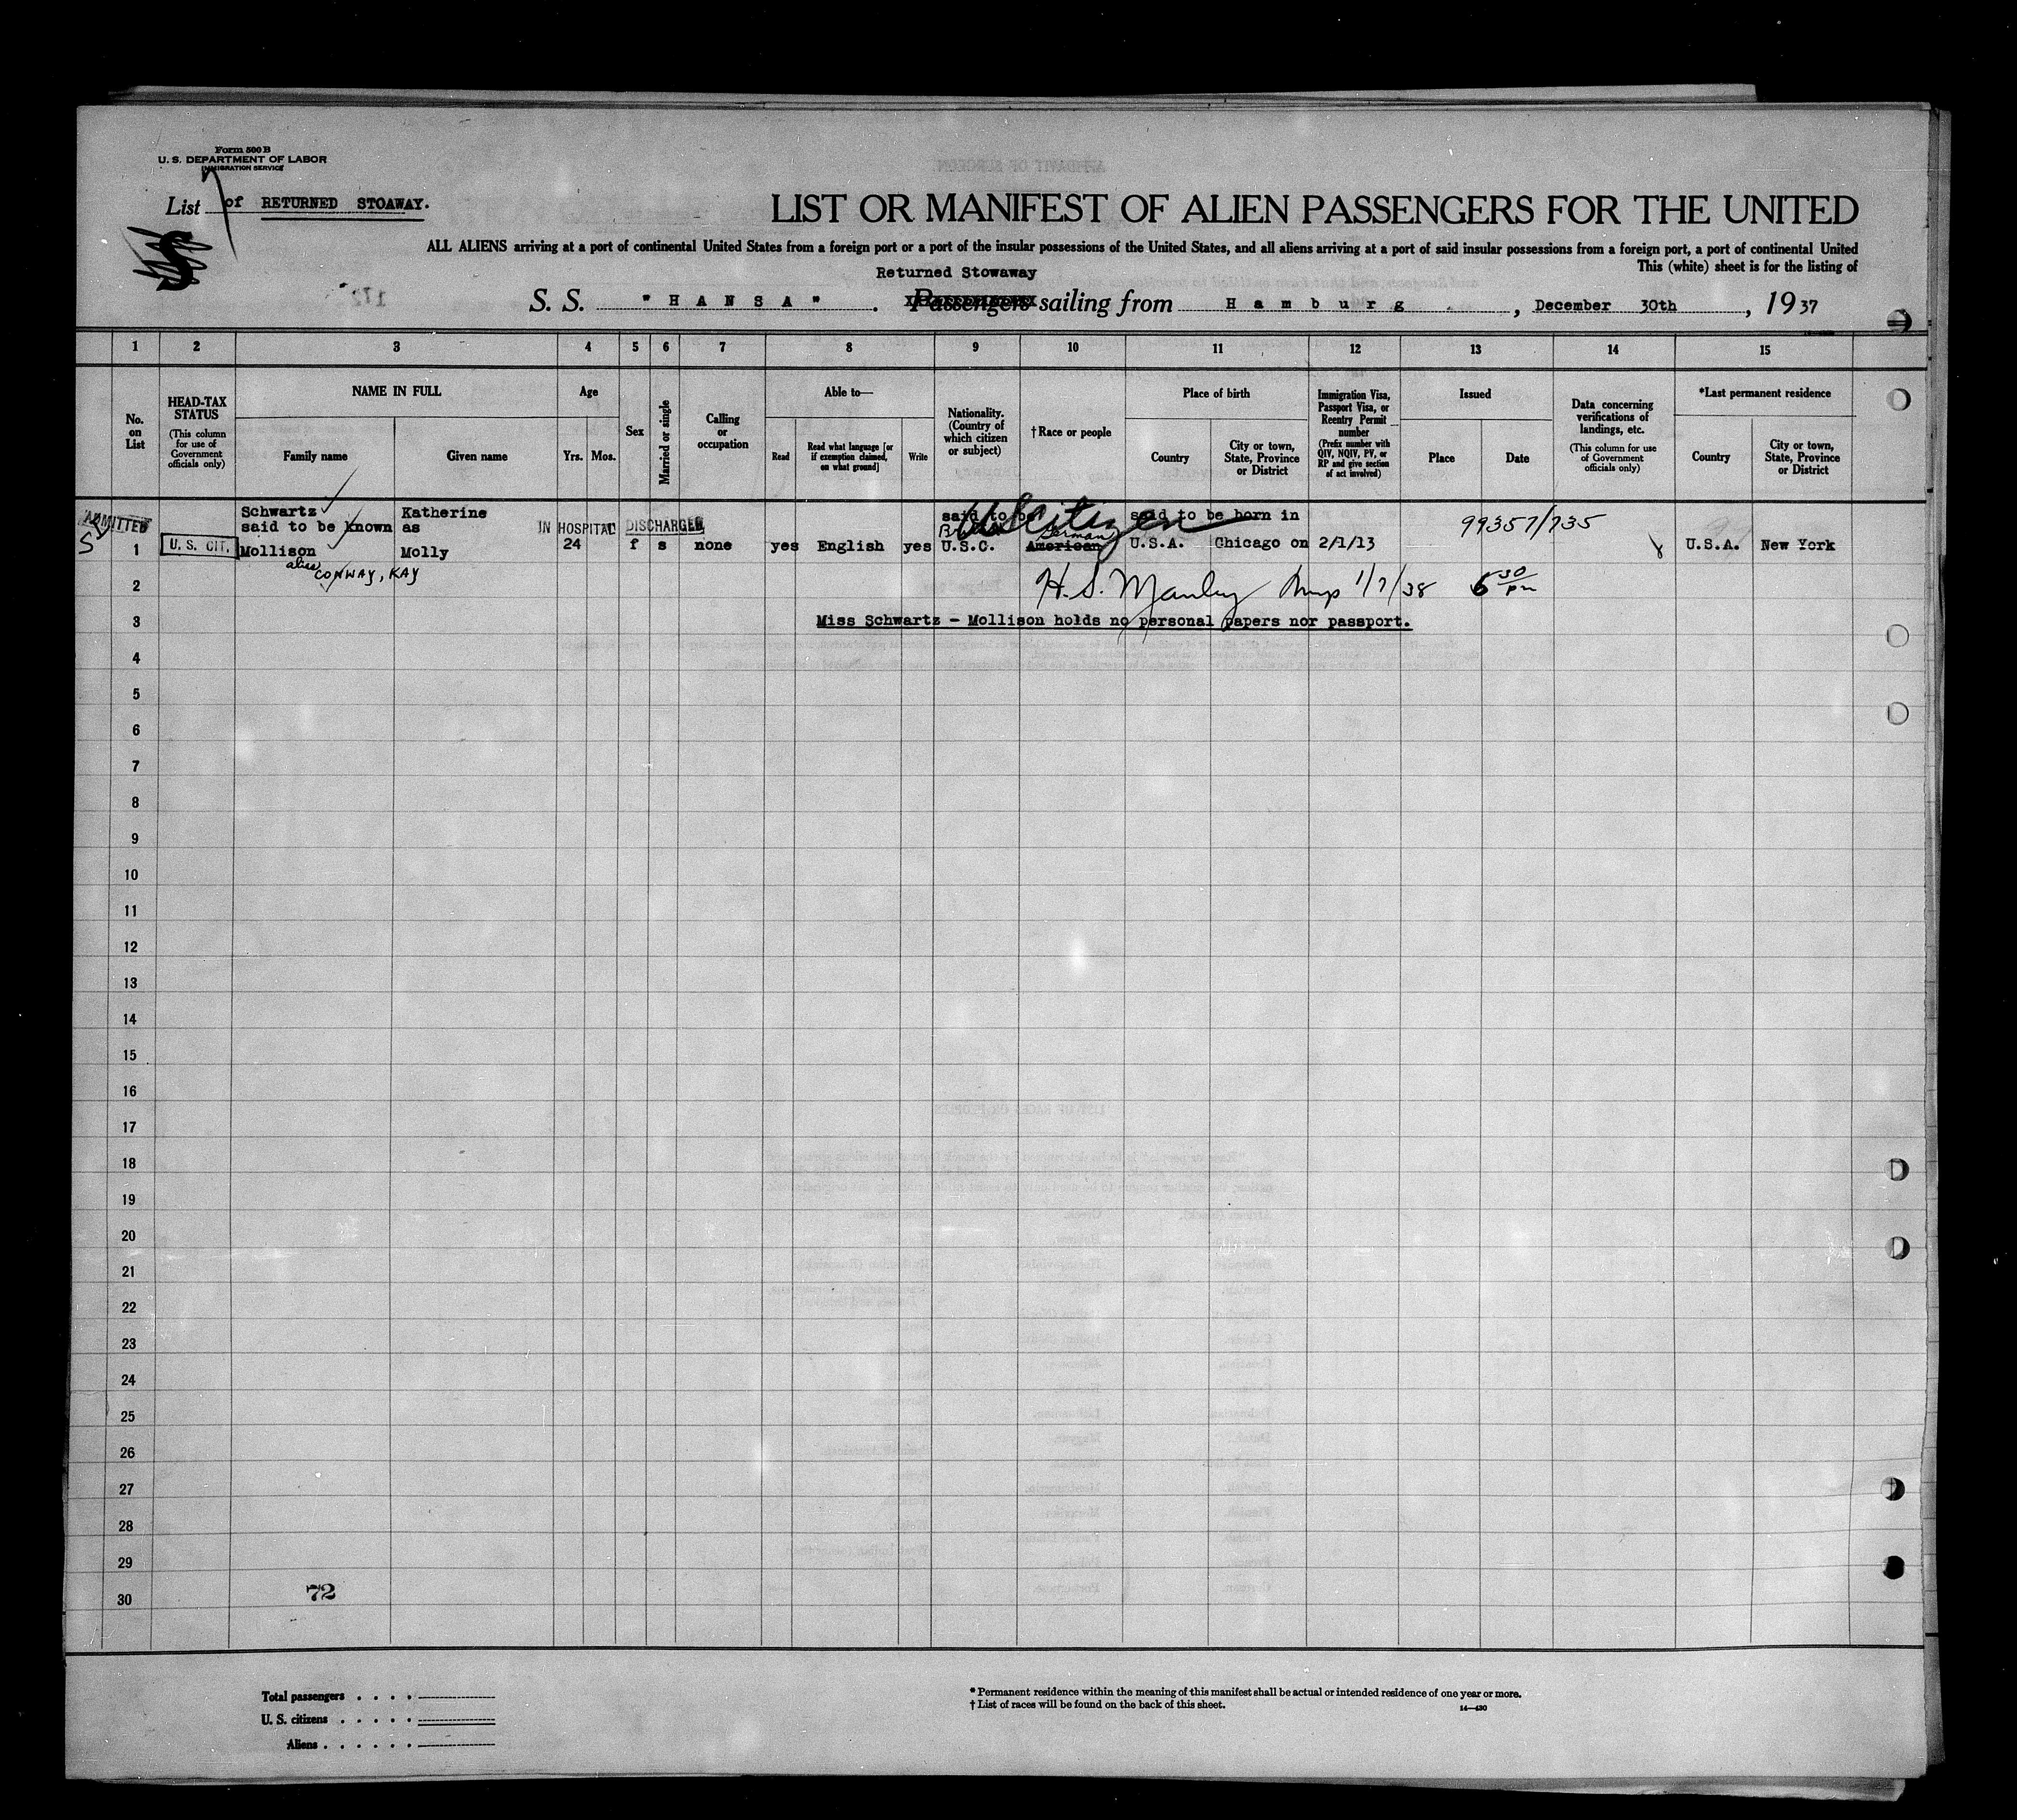 Form 500 B
U. S. DEPARTMENT OF LABOR
IMMIGRATION SERVICE
List of RETURNED STOAWAY.
S
LIST OR MANIFEST OF ALIEN PASSENGERS FOR THE UNITED
ALL ALIENS arriving at a port of continental United States from a foreign port or a port of the insular possessions of the United States, and all aliens arriving at a port of said insular possessions from a foreign port, a port of continental United
This (white) sheet is for the listing of
Returned Stowaway
S. S. " H A N S A " . Passengers sailing from H a m b u r g , December 30th , 19 37
1 2 3 4 5 6 7 8 9 10 11 12 13 14 15
No. on List
HEAD-TAX STATUS (This column for use of Government officials only)
NAME IN FULL
Family name
Given name
Age
Yrs. Mos.
Sex
Married or single
Calling or occupation
Able to—
Read
Read what language [or if exemption claimed, on what ground]
Write
Nationality. (Country of which citizen or subject)
†Race or people
Place of birth
Country
City or town, State, Province or District
Immigration Visa, Passport Visa, or Reentry Permit number (Prefix number with QIV, NQIV, PV, or RP and give section of act involved)
Issued
Place
Date
Data concerning verifications of landings, etc. (This column for use of Government officials only)
*Last permanent residence
Country
City or town, State, Province or District
ADMITTED
Schwartz Katherine said to be said to be born in
US Citizen
99357/735
said to be known as IN HOSPITAL DISCHARGED
German
1 U. S. CIT. Mollison Molly 24 f s none yes English yes U.S.C. American U.S.A. Chicago on 2/1/13 U.S.A. New York
alias CONWAY, KAY
2 H. S. Manley Insp 1/7/38 6 30/pm
3 Miss Schwartz - Mollison holds no personal papers nor passport.
4
5
6
7
8
9
10
11
12
13
14
15
16
17
18
19
20
21
22
23
24
25
26
27
28
29
30
72
Total passengers . . . .
U. S. citizens . . . . .
Aliens . . . . . .
* Permanent residence within the meaning of this manifest shall be actual or intended residence of one year or more.
† List of races will be found on the back of this sheet.
14—430